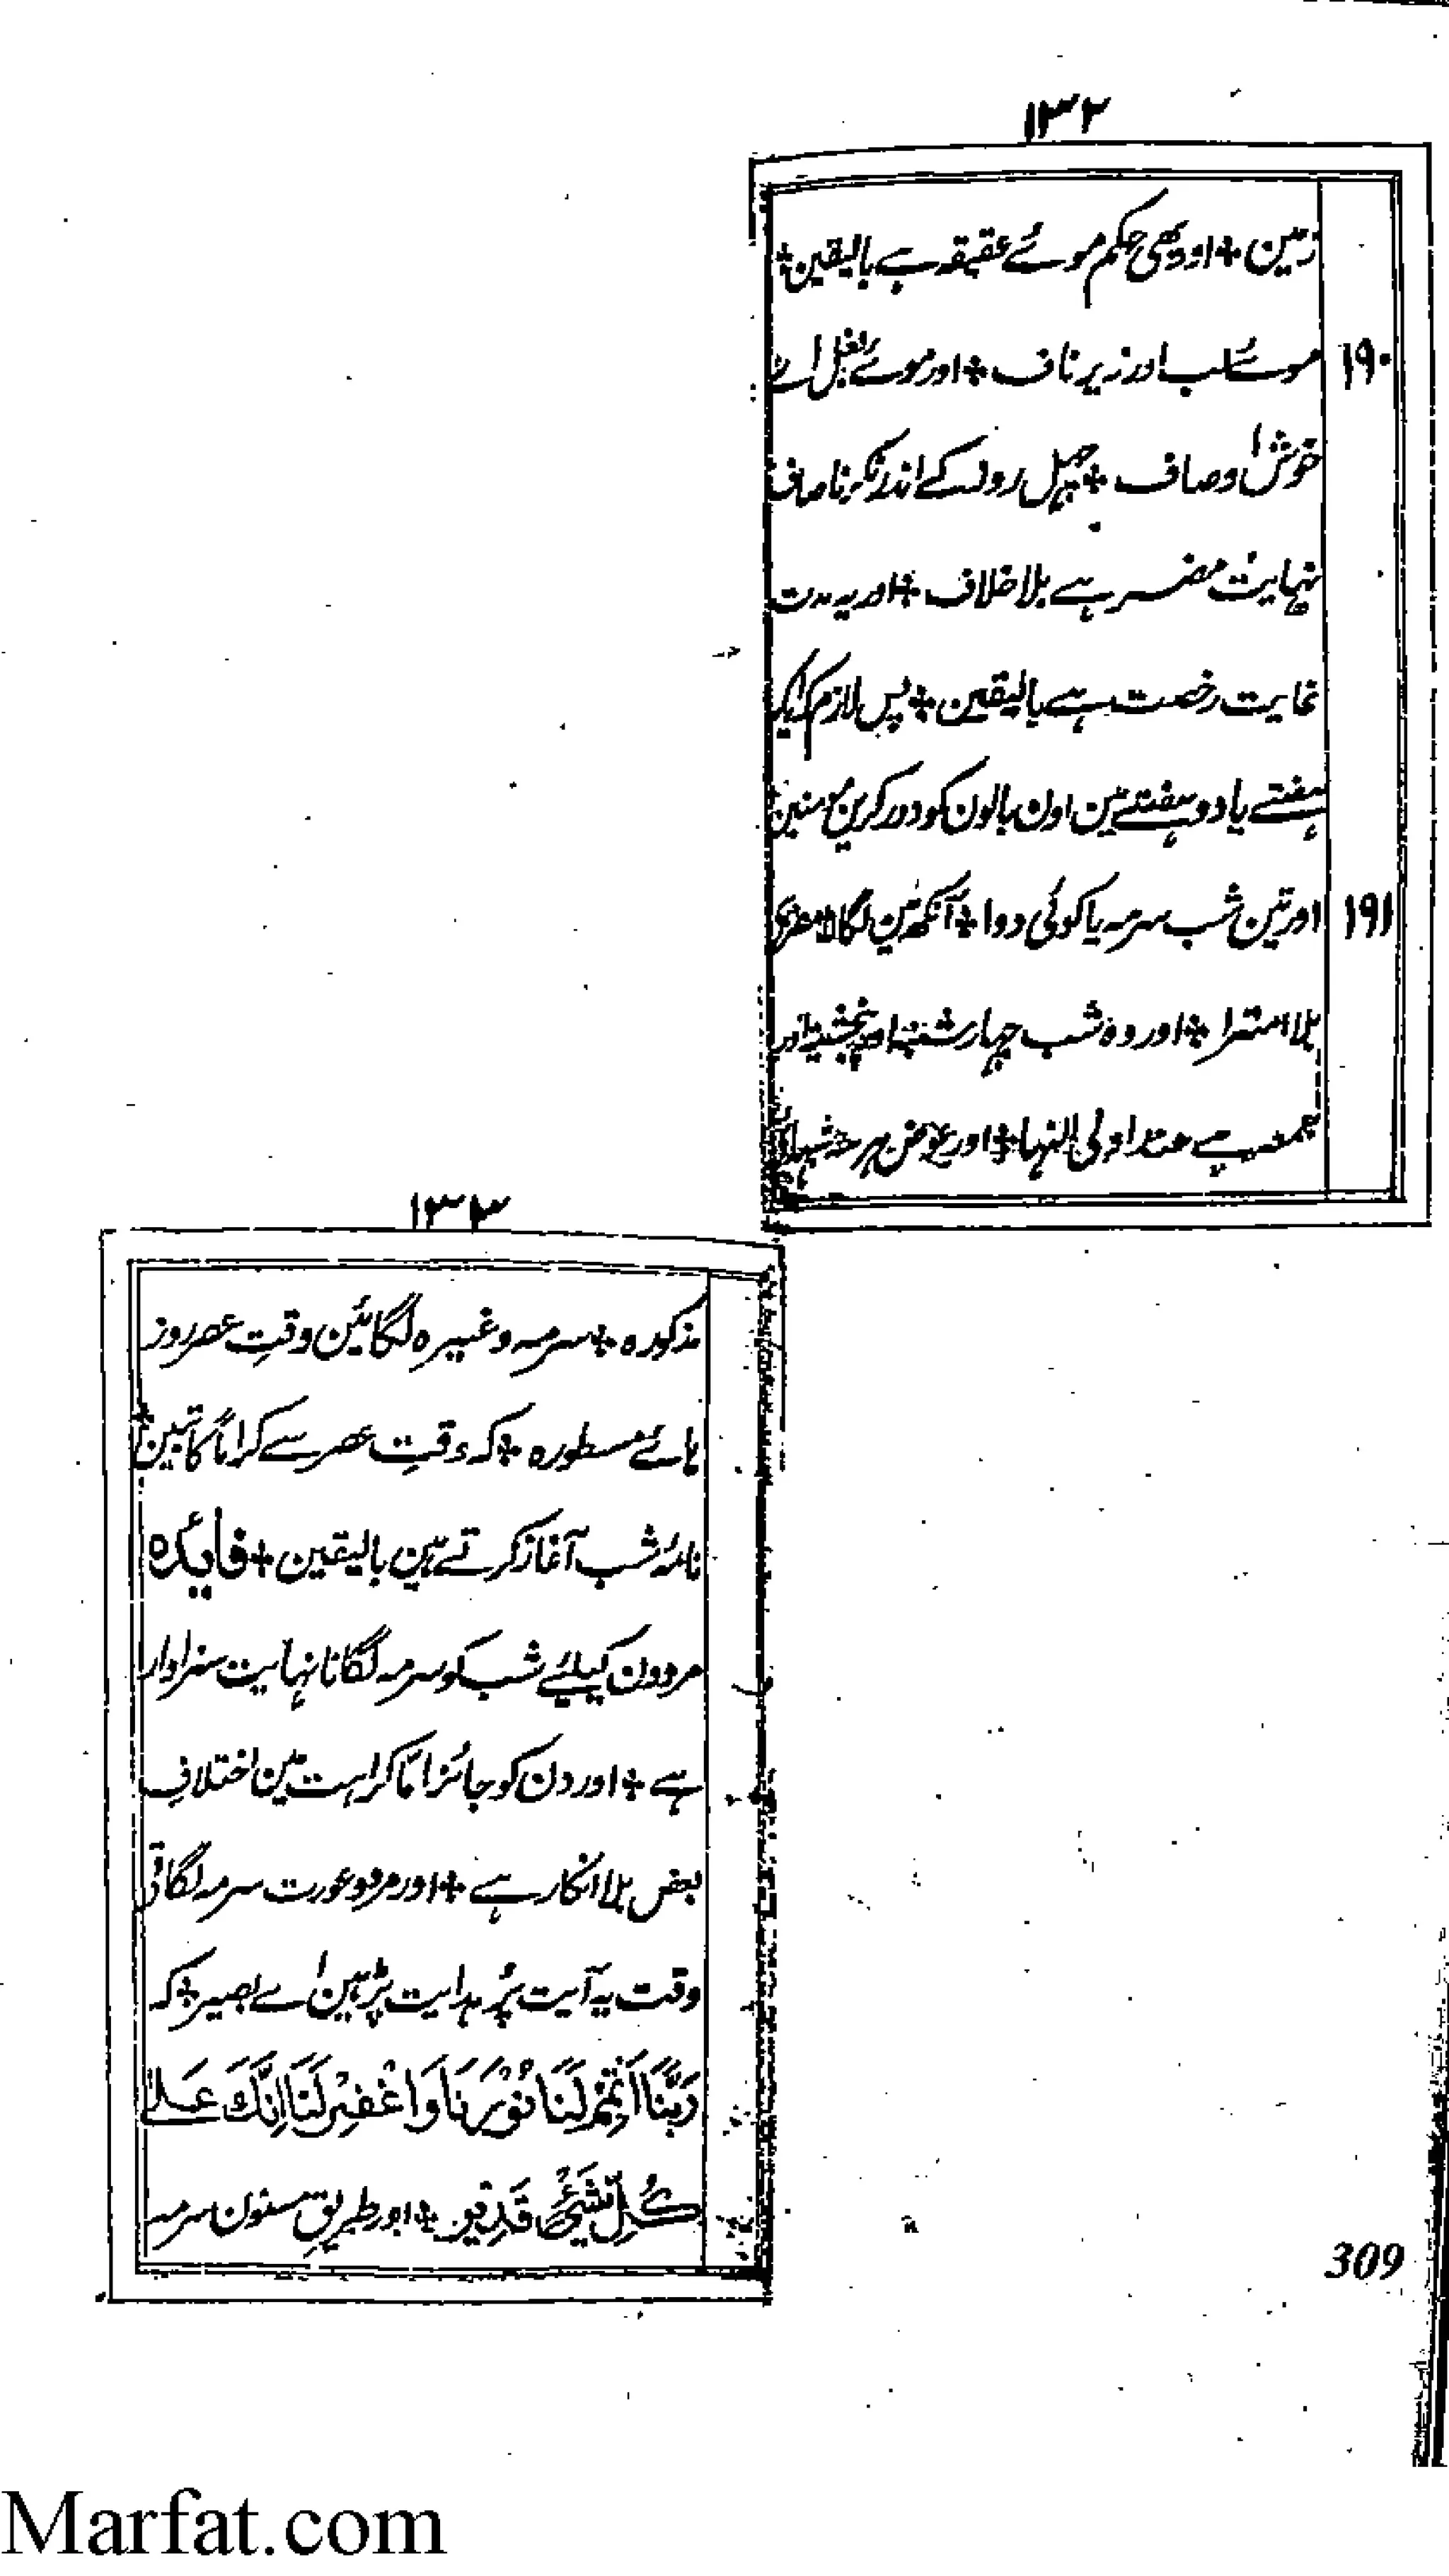 ۱۳۲
زمین + اور یہی حکم موئے عقیقہ ہے بالیقین +
۱۹۰ موئے لب اور زیر ناف + اور موئے بغل اے
خوش اوصاف + چہل روز کے اندر نکرنا صاف
نہایت مضر ہے بلا خلاف + اور یہ مدت
غایت رخصت ہے بالیقین + پس لازم کہ ایک
ہفتے یا دو ہفتے مین اون بالون کو دور کرین مومنین
۱۹۱ اور تین شب سرمہ یا کوئی دوا + آنکھ مین لگانا مضر ہی
بلا امترا + اور وہ شب چہارشنبہ اور پنجشنبہ اور
جمعہ ہے عند اولی النہا + اور عوض ہر سہ شبہائے
۱۳۳
مذکورہ + سرمہ وغیرہ لگائین وقتِ عصر روز
ہائے مسطورہ + کہ وقتِ عصر سے کراماً کاتبین
نامۂ شب آغاز کرتے ہین بالیقین + فایدہ
مردون کیلئے شب کو سرمہ لگانا نہایت سزاوار
ہے + اور دن کو جائز امّا کراہت مین اختلافِ
بعض بلا انکار ہے + اور مرد و عورت سرمہ لگاتی
وقت یہ آیت پُر ہدایت پڑہین اے بصیر + کہ
رَبَّنَا اَتْمِمْ لَنَا نُوْرَنَا وَاغْفِرْ لَنَا اِنَّكَ عَلٰے
كُلِّ شَیْءٍ قَدِیْر + اور طریقِ مسنون سرمہ
309
Marfat.com